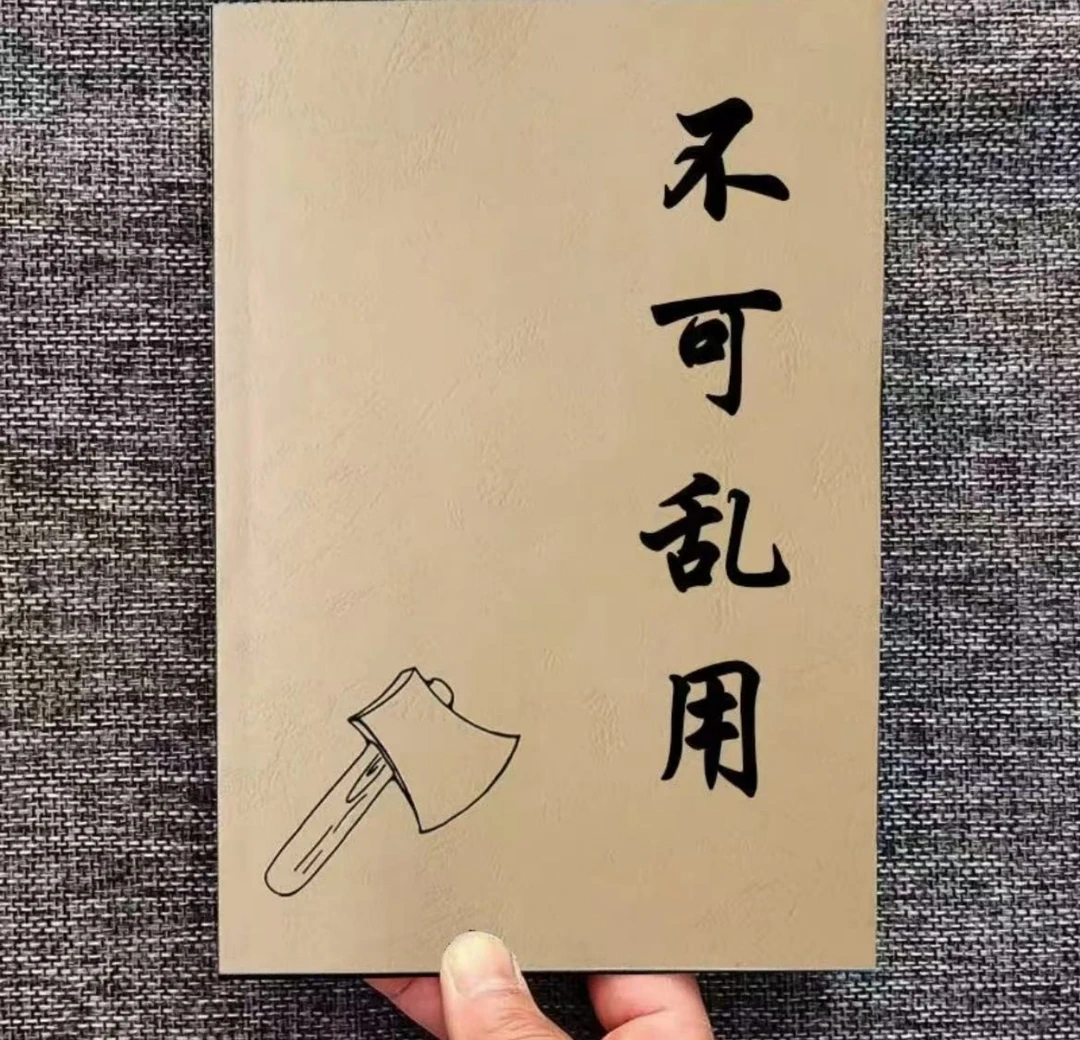 不可乱用